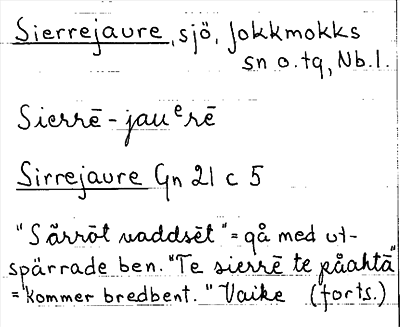 Sierrejaure, sjö, Jokkmokks
sn o. tg, Nb. l.
Sierrē - jauᵉrē
Sirrejaure Gn 21 c 5
"Sårrōt vaddsēt" = gå med ut-
spärrade ben. "Te sierrē te påahtā"
= "kommer bredbent." Vaike (forts.)